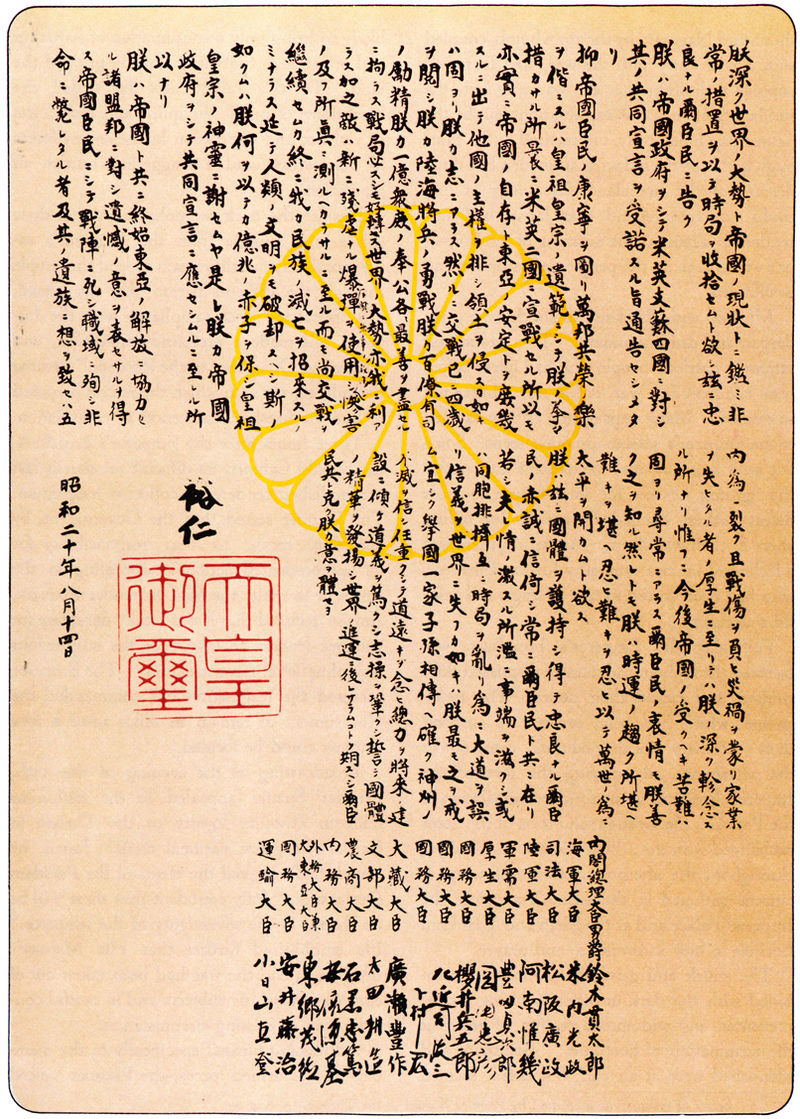 朕深ク世界ノ大勢ト帝國ノ現狀トニ鑑ミ非
常ノ措置ヲ以テ時局ヲ收拾セムト欲シ茲ニ忠
良ナル爾臣民ニ告ク
朕ハ帝國政府ヲシテ米英支蘇四國ニ對シ
其ノ共同宣言ヲ受諾スル旨通告セシメタ
リ
抑帝國臣民ノ康寧ヲ圖リ萬邦共榮ノ樂
ヲ偕ニスルハ皇祖皇宗ノ遺範ニシテ朕ノ拳々
措カサル所曩ニ米英二國ニ宣戰セル所以モ
亦實ニ帝國ノ自存ト東亞ノ安定トヲ庶幾
スルニ出テ他國ノ主權ヲ排シ領土ヲ侵スカ如キ
ハ固ヨリ朕カ志ニアラス然ルニ交戰已ニ四歳
ヲ閲シ朕カ陸海將兵ノ勇戰朕カ百僚有司
ノ勵精朕カ一億衆庶ノ奉公各最善ヲ盡セル
ニ拘ラス戰局必スシモ好轉セス世界ノ大勢亦我ニ利ア
ラス加之敵ハ新ニ殘虐ナル爆彈ヲ使用シテ頻ニ無辜ヲ殺傷シ慘害
ノ及フ所眞ニ測ルヘカラサルニ至ル而モ尚交戰ヲ
繼續セムカ終ニ我カ民族ノ滅亡ヲ招來スルノ
ミナラス延テ人類ノ文明ヲモ破却スヘシ斯ノ
如クムハ朕何ヲ以テカ億兆ノ赤子ヲ保シ皇祖
皇宗ノ神靈ニ謝セムヤ是レ朕カ帝國
政府ヲシテ共同宣言ニ應セシムルニ至レル所
以ナリ
朕ハ帝國ト共ニ終始東亞ノ解放ニ協力セ
ル諸盟邦ニ對シ遺憾ノ意ヲ表セサルヲ得
ス帝國臣民ニシテ戰陣ニ死シ職域ニ殉シ非
命ニ斃レタル者及其ノ遺族ニ想ヲ致セハ五
內爲ニ裂ク且戰傷ヲ負ヒ災禍ヲ蒙リ家業
ヲ失ヒタル者ノ厚生ニ至リテハ朕ノ深ク軫念ス
ル所ナリ惟フニ今後帝國ノ受クヘキ苦難ハ
固ヨリ尋常ニアラス爾臣民ノ衷情モ朕善
ク之ヲ知ル然レトモ朕ハ時運ノ趨ク所堪ヘ
難キヲ堪ヘ忍ヒ難キヲ忍ヒ以テ萬世ノ爲ニ
太平ヲ開カムト欲ス
朕ハ茲ニ國體ヲ護持シ得テ忠良ナル爾臣
民ノ赤誠ニ信倚シ常ニ爾臣民ト共ニ在リ
若シ夫レ情ノ激スル所濫ニ事端ヲ滋クシ或
ハ同胞排擠互ニ時局ヲ亂リ爲ニ大道ヲ誤
リ信義ヲ世界ニ失フカ如キハ朕最モ之ヲ戒
ム宜シク擧國一家子孫相傳ヘ確ク神州ノ
不滅ヲ信シ任重クシテ道遠キヲ念ヒ總力ヲ將來ノ建
設ニ傾ケ道義ヲ篤クシ志操ヲ鞏クシ誓テ國體
ノ精華ヲ發揚シ世界ノ進運ニ後レサラムコトヲ期スヘシ爾臣
民其レ克ク朕カ意ヲ體セヨ
裕仁
天皇
御璽
昭和二十年八月十四日
內閣總理大臣男爵鈴木貫太郎
海軍大臣 米內光政
司法大臣 松阪廣政
陸軍大臣 阿南惟幾
軍需大臣 豊田貞次郎
厚生大臣 岡田忠彦
國務大臣 櫻井兵五郎
國務大臣 左近司政三
國務大臣 下村宏
大藏大臣 廣瀨豊作
文部大臣 太田耕造
農商大臣 石黑忠篤
內務大臣 安倍源基
外務大臣兼大東亞大臣 東郷茂德
國務大臣 安井藤治
運輸大臣 小日山直登